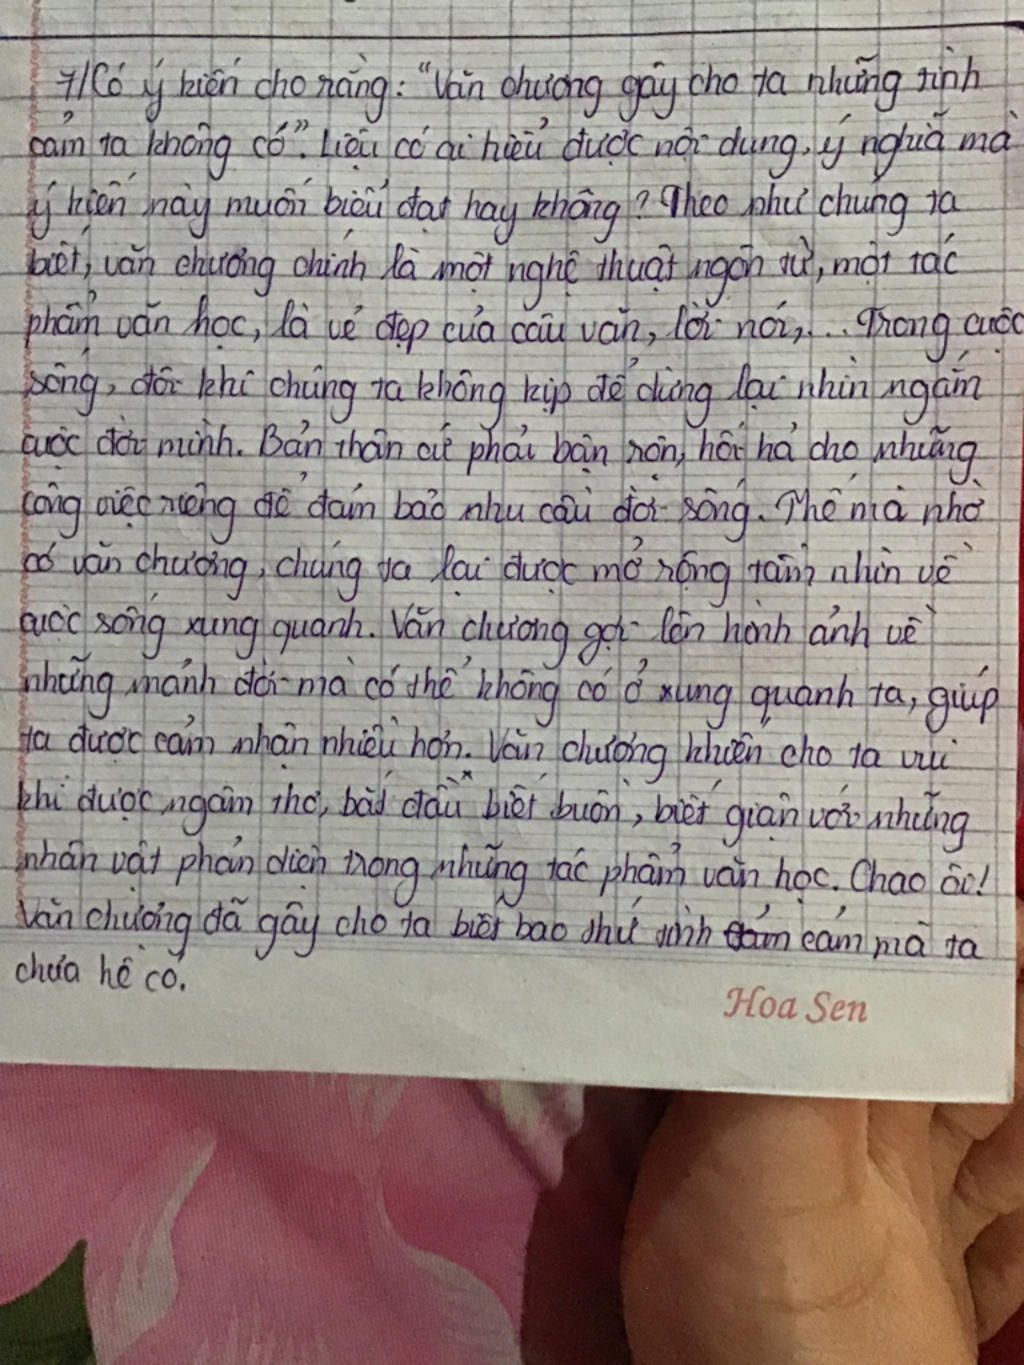 7/ Có ý kiến cho rằng: "Văn chương gây cho ta những tình
cảm ta không có". Liệu có ai hiểu được nội dung, ý nghĩa mà
ý kiến này muốn biểu đạt hay không? Theo như chúng ta
biết, văn chương chính là một nghệ thuật ngôn từ, một tác
phẩm văn học, là vẻ đẹp của câu văn, lời nói,... Trong cuộc
sống, đôi khi chúng ta không kịp để dừng lại nhìn ngắm
cuộc đời mình. Bản thân cứ phải bận rộn, hối hả cho những
công việc riêng để đảm bảo nhu cầu đời sống. Thế mà nhờ
có văn chương, chúng ta lại được mở rộng tầm nhìn về
cuộc sống xung quanh. Văn chương gợi lên hình ảnh về
những mảnh đời mà có thể không có ở xung quanh ta, giúp
ta được cảm nhận nhiều hơn. Văn chương khiến cho ta vui
khi được ngâm thơ, bắt đầu biết buồn, biết giận với những
nhân vật phản diện trong những tác phẩm văn học. Chao ôi!
Văn chương đã gây cho ta biết bao thứ tình cảm mà ta
chưa hề có.
Hoa Sen